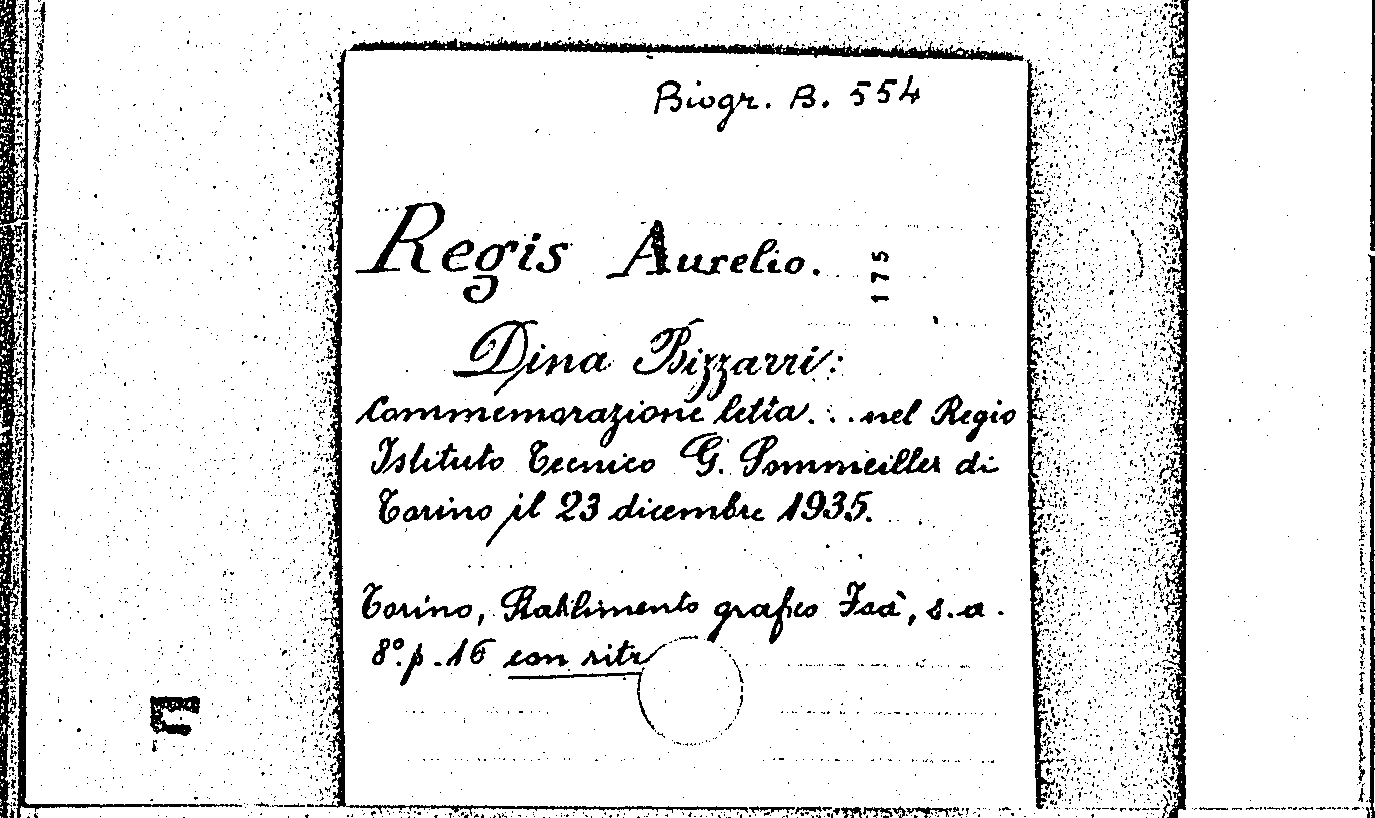 Biogr. B. 554
Regis Aurelio.
175
Dina Bizzarri:
Commemorazione letta ... nel Regio
Istituto Tecnico G. Sommeiller di
Torino il 23 dicembre 1935.
Torino, Stabilimento grafico Isa, s.a.
8°. p. 16 con ritr